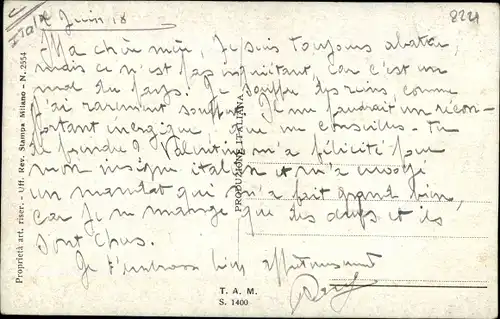 Juin 18
8221
Ma chère mère, Je suis toujours abattu,
mais ce n'est pas inquiétant, car c'est un
mal du pays. Je souffre des reins, comme
j'ai rarement souffert. Il me faudrait un récon-
fortant énergique, que me conseilles-tu
de prendre? Valentine m'a félicité pour
mon insigne italien et m'a envoyé
un mandat qui m'a fait grand bien,
car je ne mange que des œufs et ils
sont chers.
Je t'embrasse bien affectueusement
Proprietà art. riser. - Uff. Rev. Stampa Milano - N. 2554
PRODUZIONE ITALIANA
T. A. M.
S. 1400